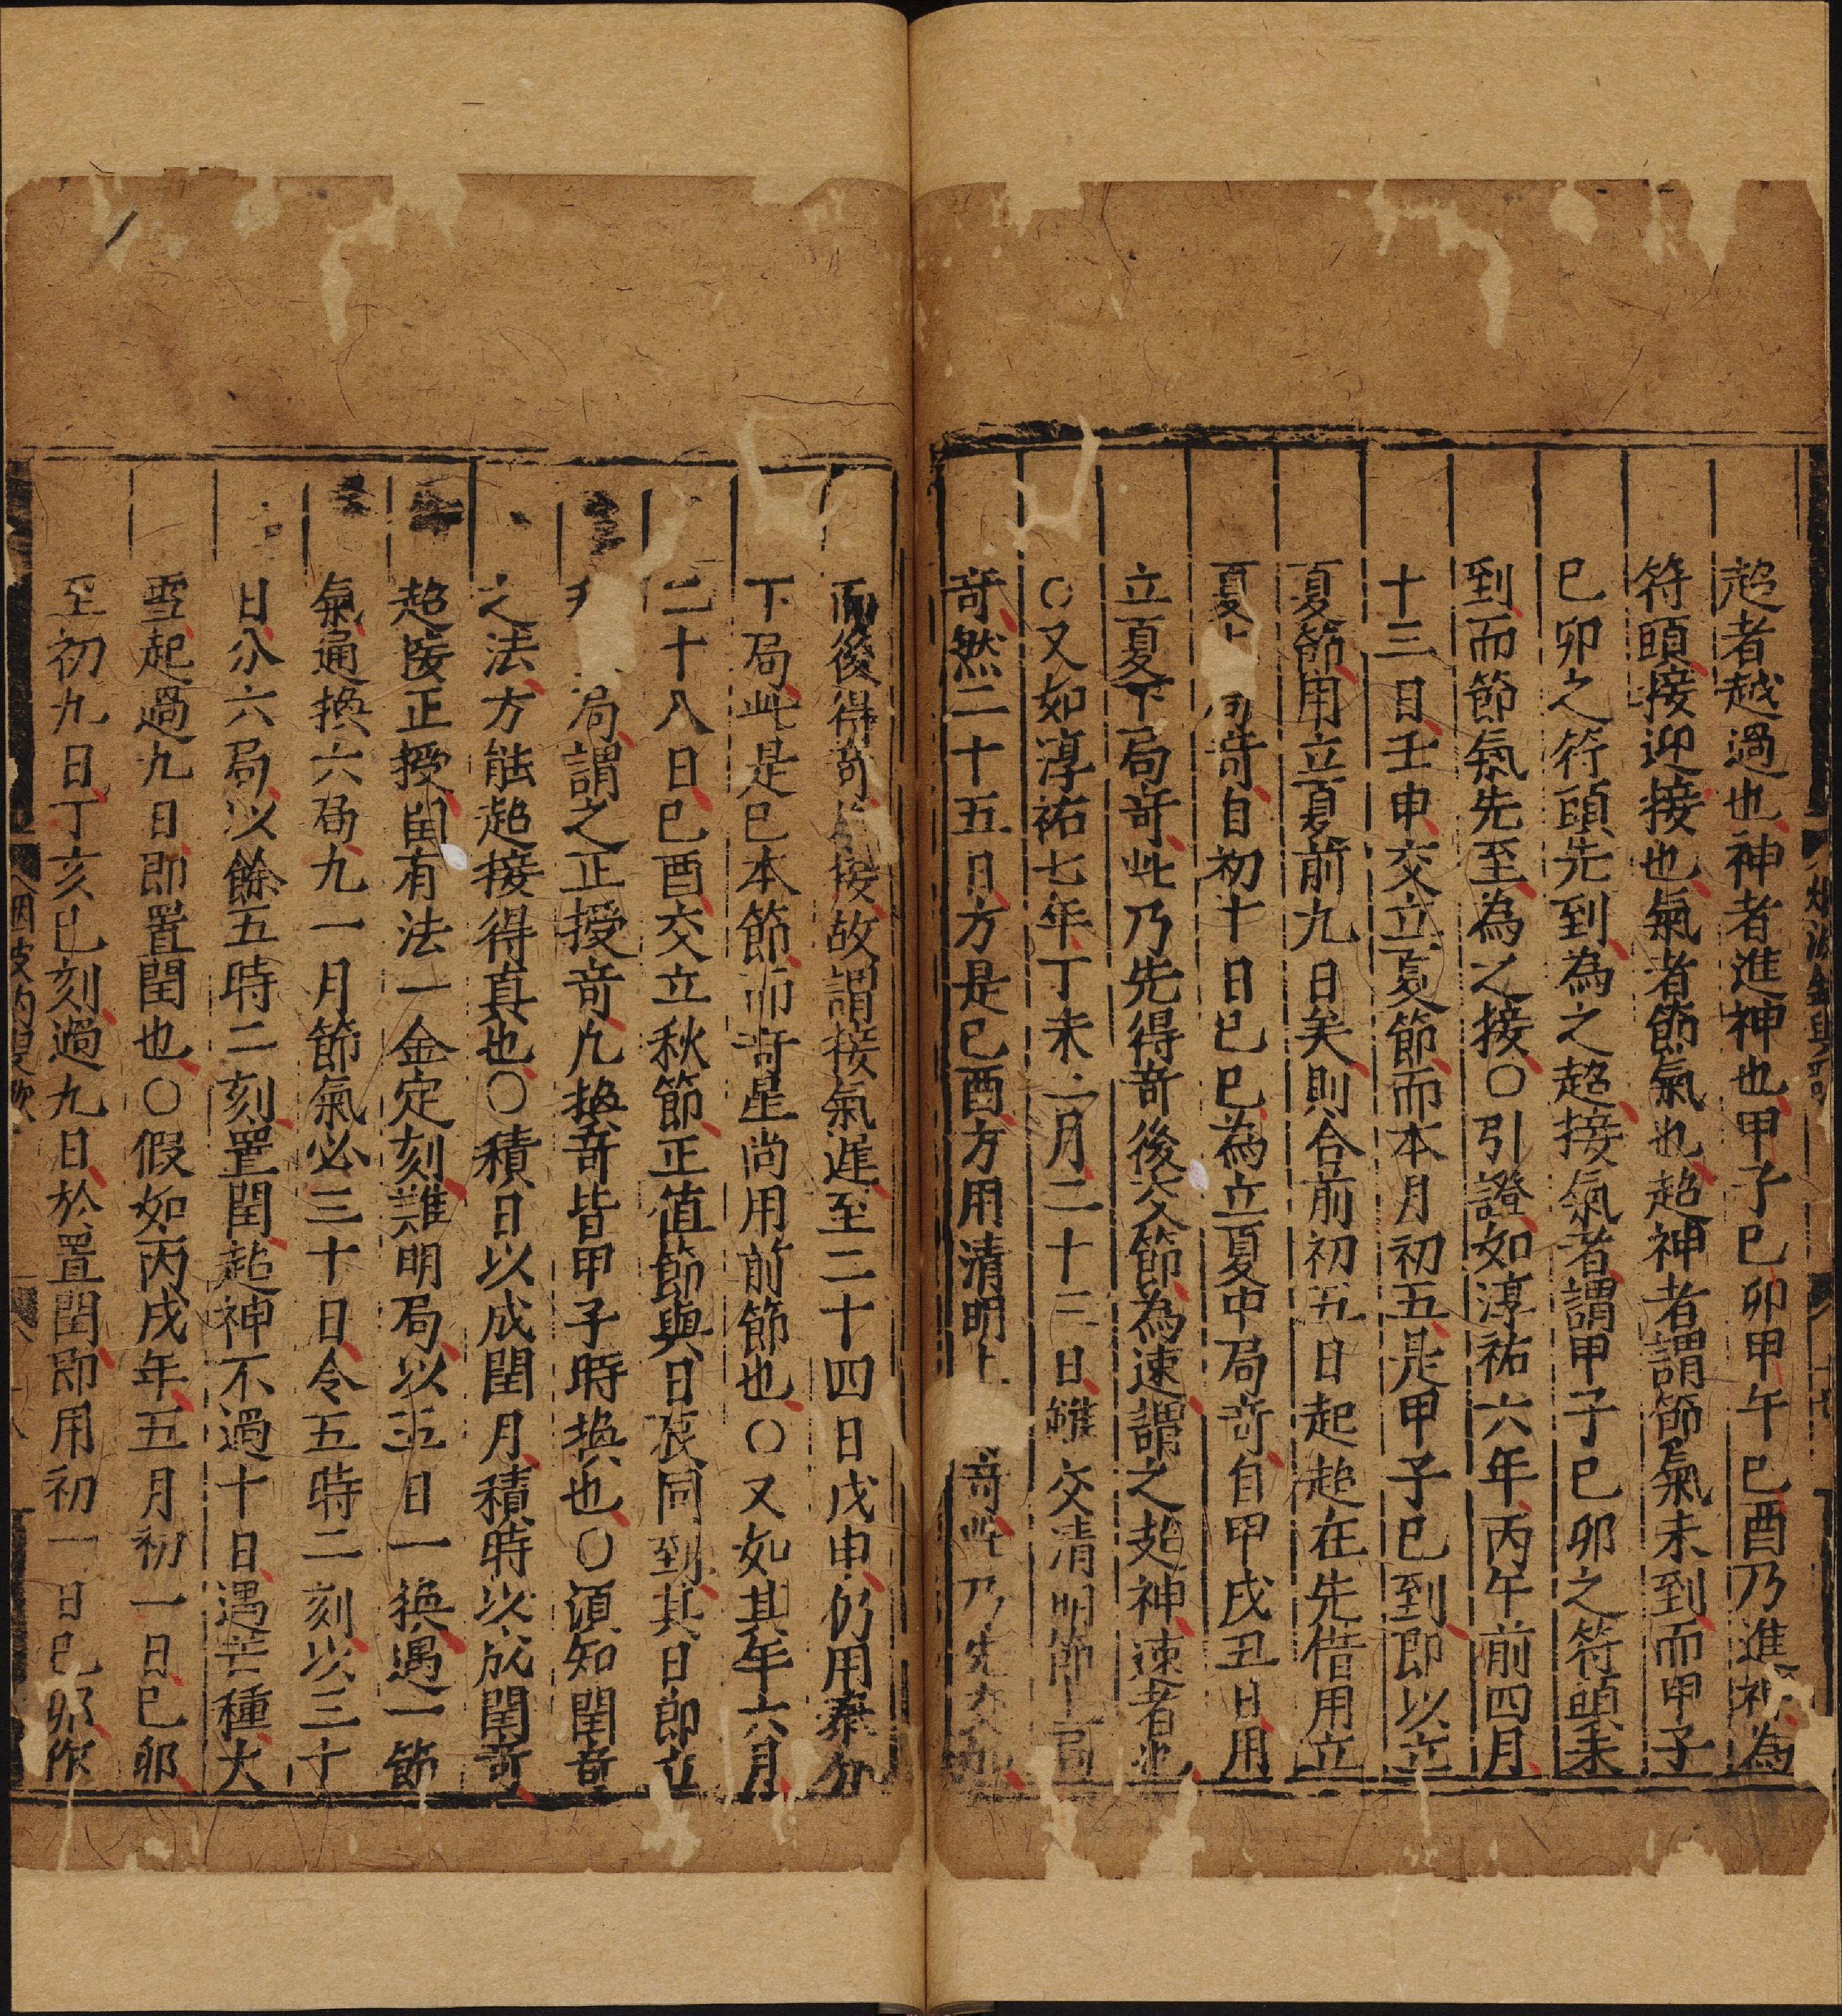 超者越過也神者進神也甲子己卯甲午己酉乃進神為
符頭接迎接也氣者節氣也超神者謂節氣未到而甲子
己卯之符頭先到為之超接氣者謂甲子己卯之符頭未
到而節氣先至為之接○引證如淳祐六年丙午前四月
十三日壬申交立夏節而本月初五是甲子已到即以立
夏節用立夏前九日矣則合前初五日起超在先借用立
夏上局奇自初十日己巳為立夏中局奇自甲戌丑日用
立夏下局奇此乃先得奇後交節為速謂之超神速者也
○又如淳祐七年丁未二月二十三日雖交清明節上局
奇然二十五日方是己酉方用清明上奇此乃先交節
而後得奇接故謂接氣遲至二十四日戊申仍用春分
下局此是已本節而奇星尚用前節也○又如其年六月
二十八日己酉交立秋節正值節與日辰同到其日即立
局謂之正授奇凡換奇皆甲子時換也○須知閏奇
之法方能超接得真也○積日以成閏月積時以成閏奇
超接正授閏有法一金定刻難明局以五日一換遇一節
氣通換六局九一月節氣必三十日令五時二刻以三十
日分六局以餘五時二刻置閏超神不過十日遇芒種大
雪起過九日即置閏也○假如丙戌年五月初一日己卯
至初九日丁亥巳刻過九日於置閏即用初一日己卯作